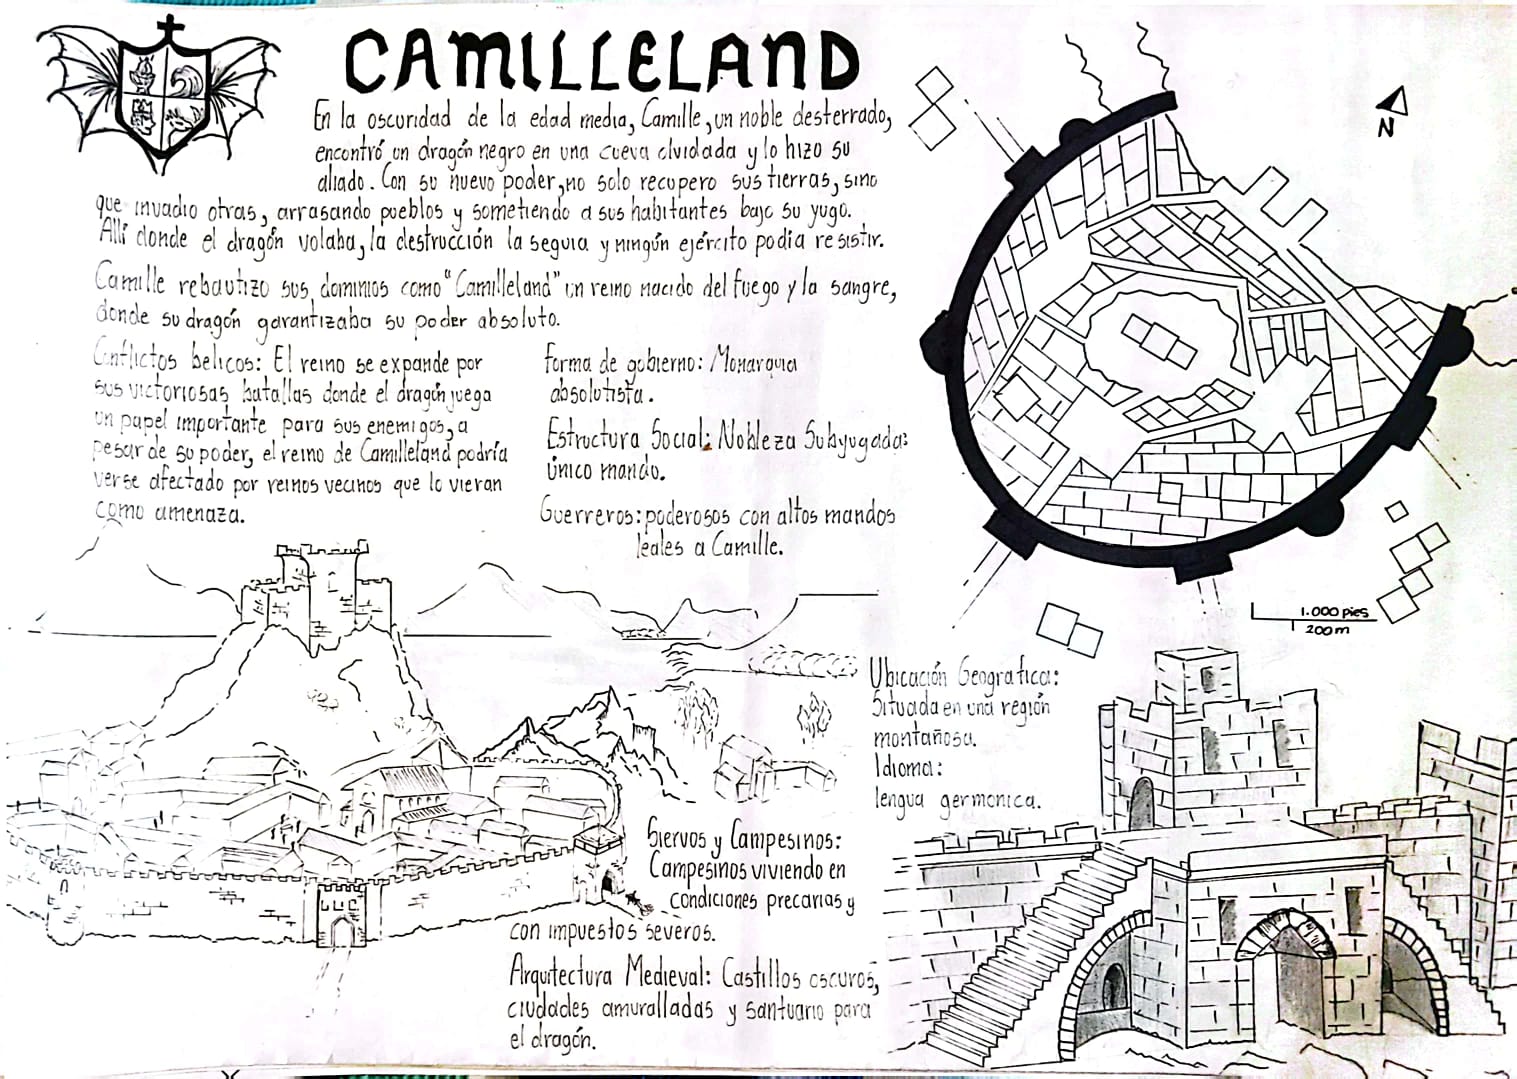 CAMILLELAND
En la oscuridad de la edad media, Camille, un noble desterrado,
encontró un dragón negro en una cueva olvidada y lo hizo su
aliado. Con su nuevo poder, no solo recupero sus tierras, sino
que invadio otras, arrasando pueblos y sometiendo a sus habitantes bajo su yugo.
Allí donde el dragón volaba, la destrucción la seguia y ningún ejército podia resistir.
Camille rebautizo sus dominios como "Camilleland" un reino nacido del fuego y la sangre,
donde su dragón garantizaba su poder absoluto.
Conflictos belicos: El reino se expande por
sus victoriosas batallas donde el dragón juega
un papel importante para sus enemigos, a
pesar de su poder, el reino de Camilleland podría
verse afectado por reinos vecinos que lo vieran
como amenaza.
Forma de gobierno: Monarquia
absolutista.
Estructura Social: Nobleza Subyugada:
único mando.
Guerreros: poderosos con altos mandos
leales a Camille.
N
1.000 pies
200 m
Ubicación Geografica:
Situada en una región
montañosa.
Idioma:
lengua germonica.
Siervos y Campesinos:
Campesinos viviendo en
condiciones precarias y
con impuestos severos.
Arquitectura Medieval: Castillos oscuros,
ciudades amuralladas y santuario para
el dragón.